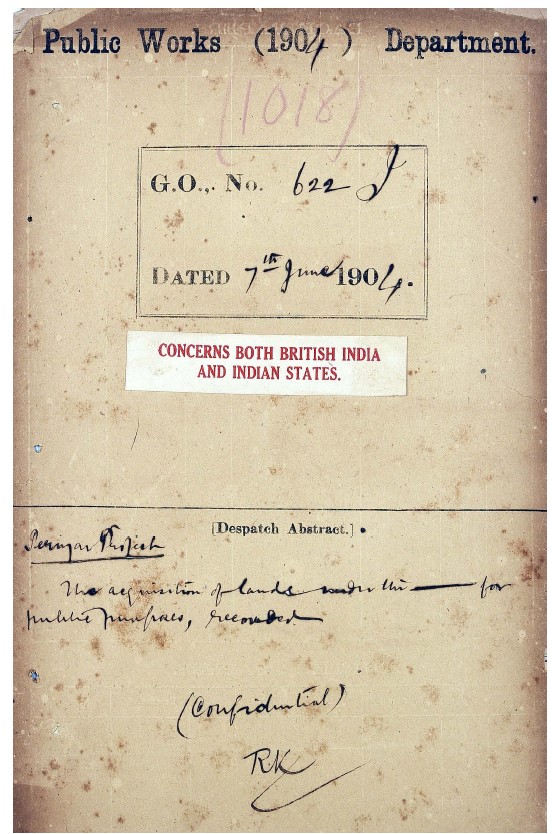 Public Works (1904) Department.
(1018)
G.O., No. 622 I
DATED 7th June 1904.
CONCERNS BOTH BRITISH INDIA
AND INDIAN STATES.
[Despatch Abstract.]
Periyar Project
The acquisition of lands under the —— for
public purposes, recorded
(Confidential)
RK